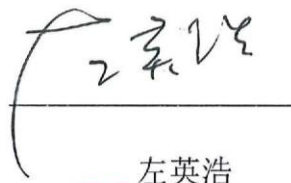 左英浩
左英浩